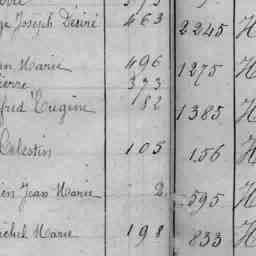 ge Joseph Désiré 463 2245 H
Marie 496 1275 H
ierre 373
fred Eugène 82 1385 H
Celestin 105 156 H
en Jean Marie 2 595 H
ichel Marie 198 833 H